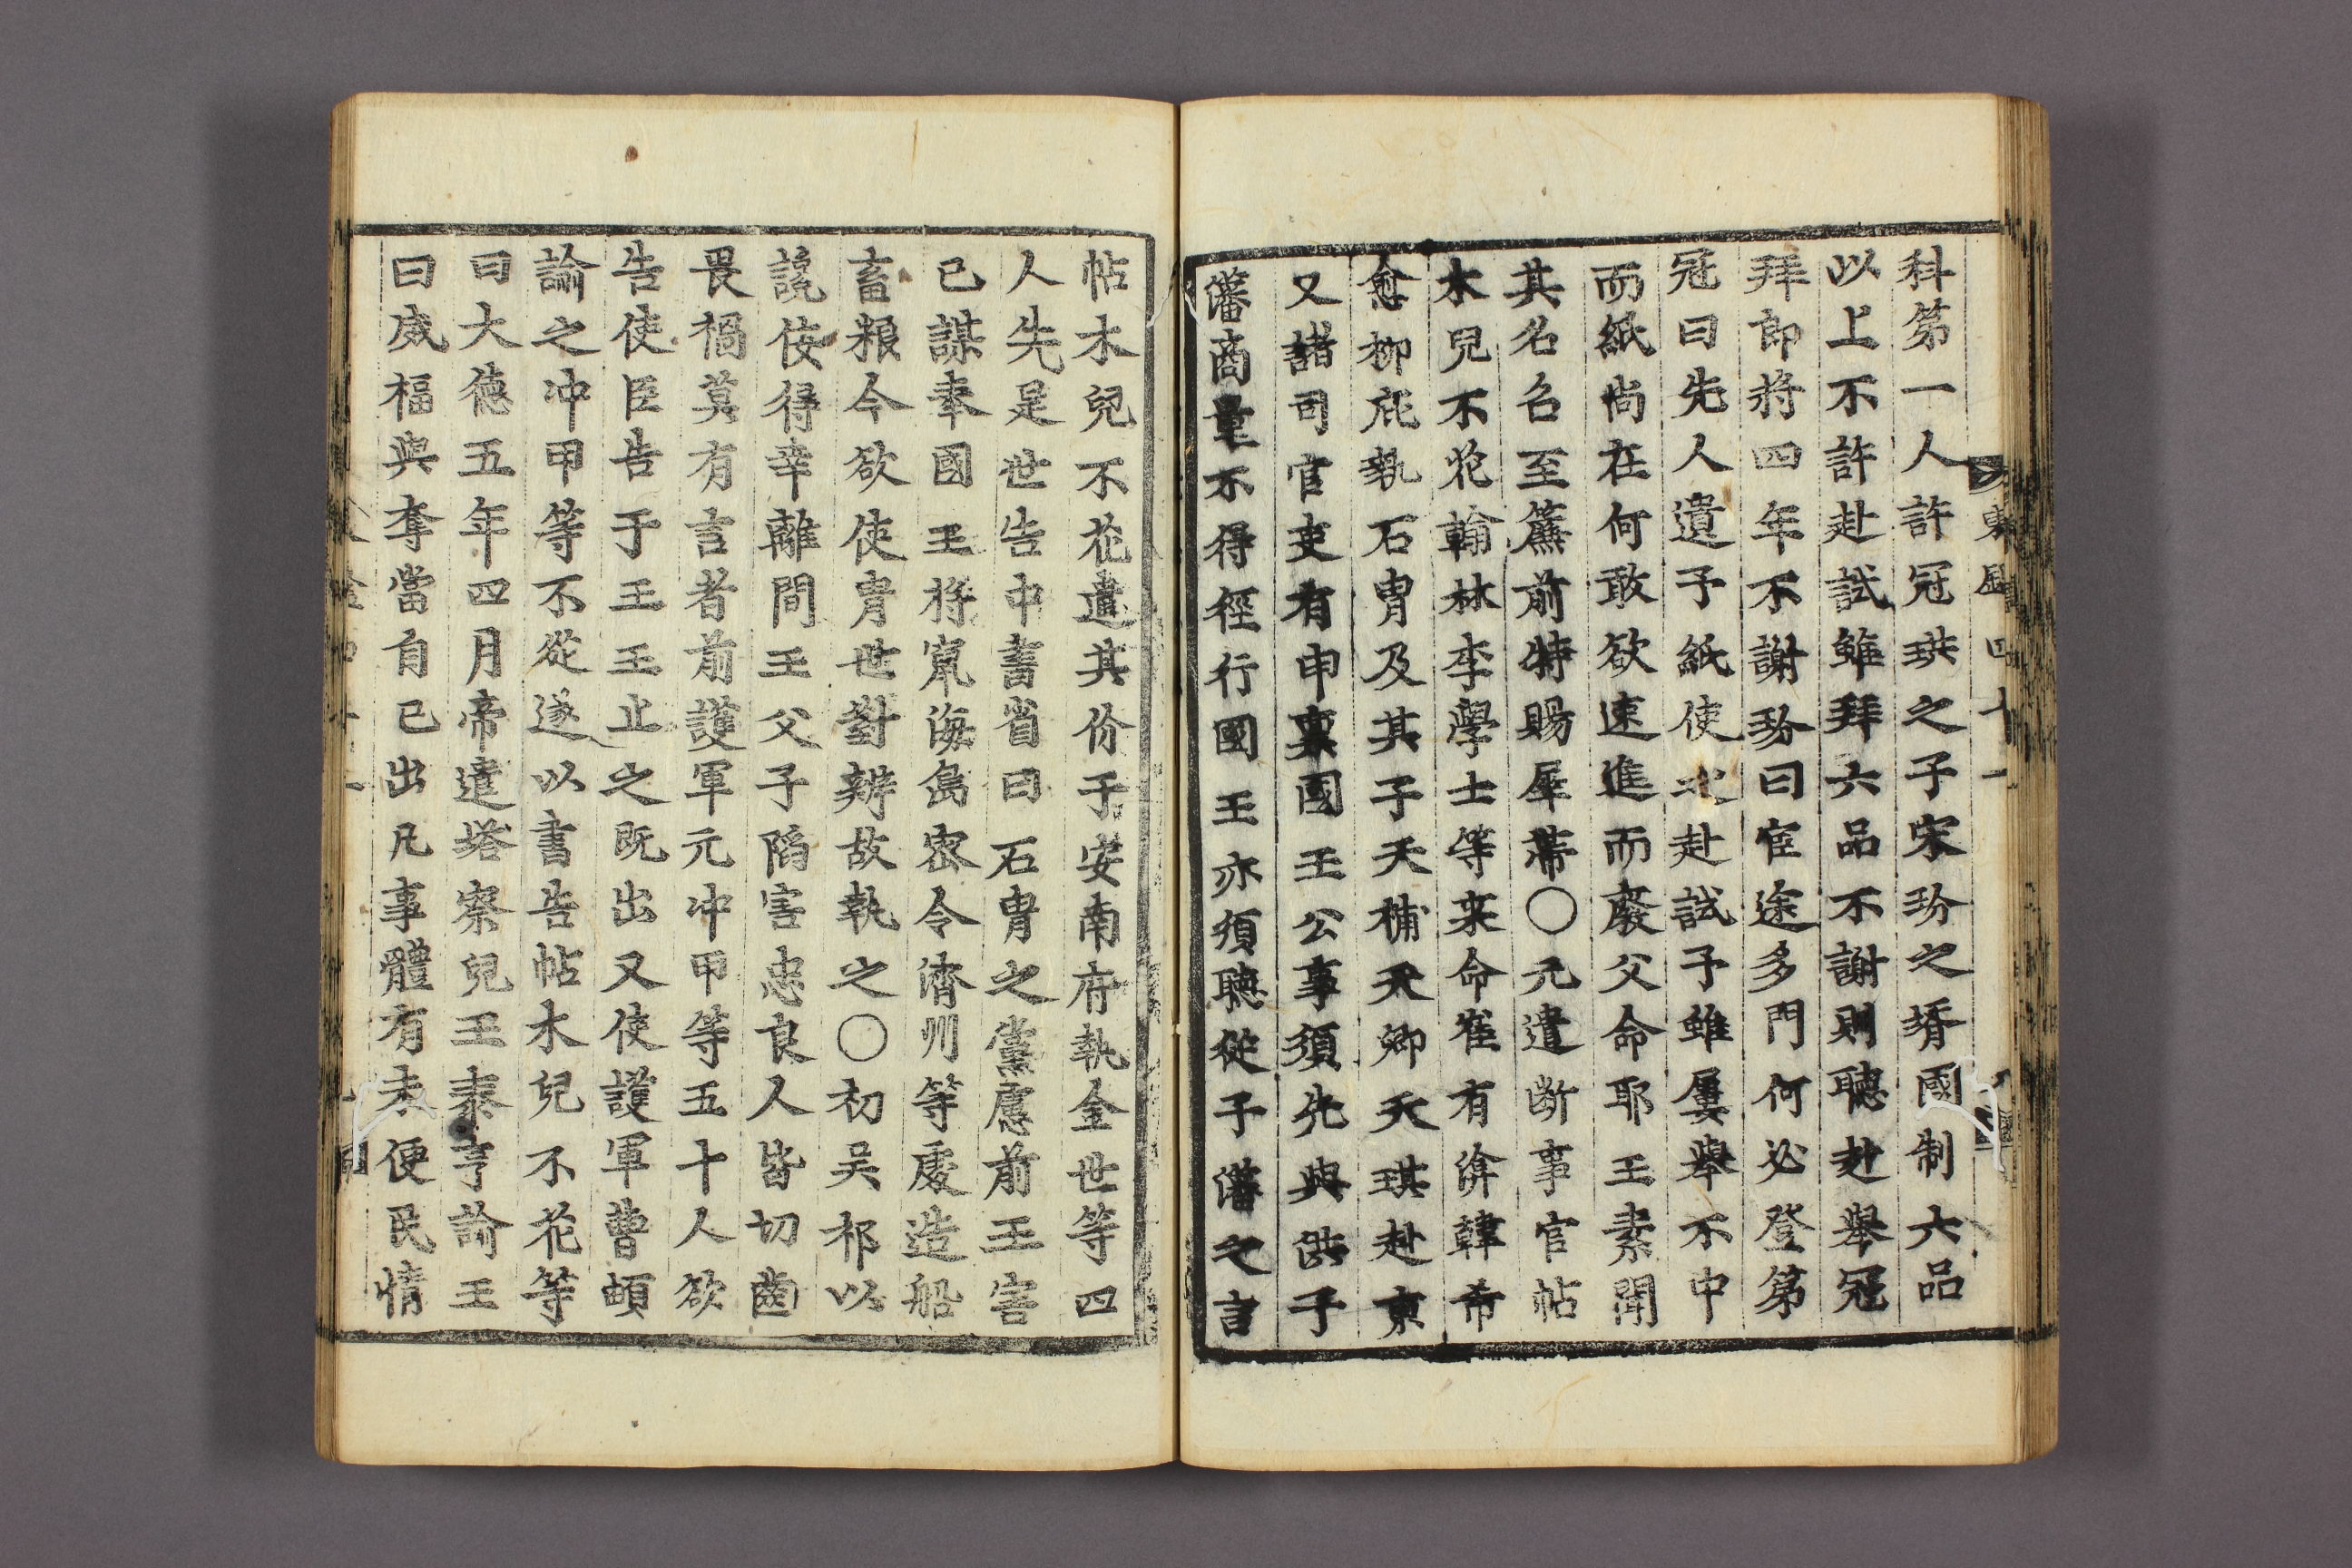 科第一人許冠珙之子宋玢之壻國制六品
以上不許赴試雖拜六品不謝則聽赴舉冠
拜郎将四年不謝玢曰宦途多門何必登第
冠曰先人遺予紙使必赴試予雖屢舉不中
而紙尚在何敢欲速進而廢父命耶王素聞
其名召至簾前特賜犀帶○元遣断事官帖
木兒不花翰林李學士等来命崔有渰韓希
愈柳庇執石胄及其子天補天卿天琪赴京
又諸司官吏有申稟國王公事須先與洪子
藩商量不得徑行國王亦須聽從子藩之言
帖木兒不花遣其伴于安南府執全世等四
人先是世告中書省曰石胄之黨慮前王害
已謀奉國王将竄海島密令濟州等處造船
畜粮今欲使胄世對辨故執之○初吴祁以
讒侫得幸離間王父子陷害忠良人皆切齒
畏禍莫有言者前護軍元冲甲等五十人欲
告使臣告于王王止之既出又使護軍曹頔
諭之冲甲等不從遂以書告帖木兒不花等
曰大德五年四月帝遣塔察兒王泰亨諭王
曰威福與奪當自已出凡事體有未便民情
東 四十一